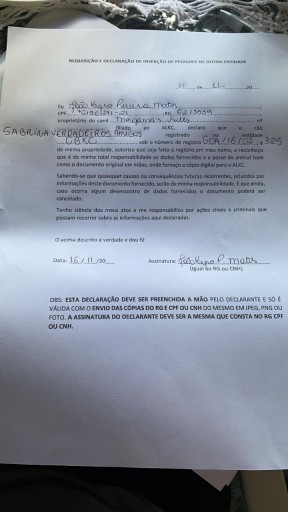 REQUISIÇÃO E DECLARAÇÃO DE INSERÇÃO DE PEDIGREE DE OUTRA ENTIDADE
16 de 11 de 20
Eu João
CPF RG
proprietário do canil nº
filiado ao ALKC, declaro que o cão
SABRINA VERDADEIROS AMIGOS registrado na entidade
sob o número de registro
de minha propriedade, autorizo que seja feito o registro em meu nome, e reconheço
que é de minha total responsabilidade os dados fornecidos e a posse do animal bem
como o documento original em mãos, onde forneço a cópia digital para o ALKC.
Sabendo-se que quaisquer causas ou consequências futuras recorrentes, oriundas por
informações deste documento fornecido, serão de minha responsabilidade. E que ainda,
caso ocorra algum desencontro de dados fornecidos o documento poderá ser
cancelado.
Tenho ciência dos meus atos e me responsabilizo por ações cíveis e criminais que
possam recorrer sobre as informações aqui declaradas.
O acima descrito é verdade e dou fé
Data: 16/11/20 Assinatura:
(Igual no RG ou CNH).
OBS: ESTA DECLARAÇÃO DEVE SER PREENCHIDA A MÃO PELO DECLARANTE E SÓ É
VÁLIDA COM O ENVIO DAS CÓPIAS DO RG E CPF OU CNH DO MESMO EM JPEG, PNG OU
FOTO. A ASSINATURA DO DECLARANTE DEVE SER A MESMA QUE CONSTA NO RG CPF
OU CNH.